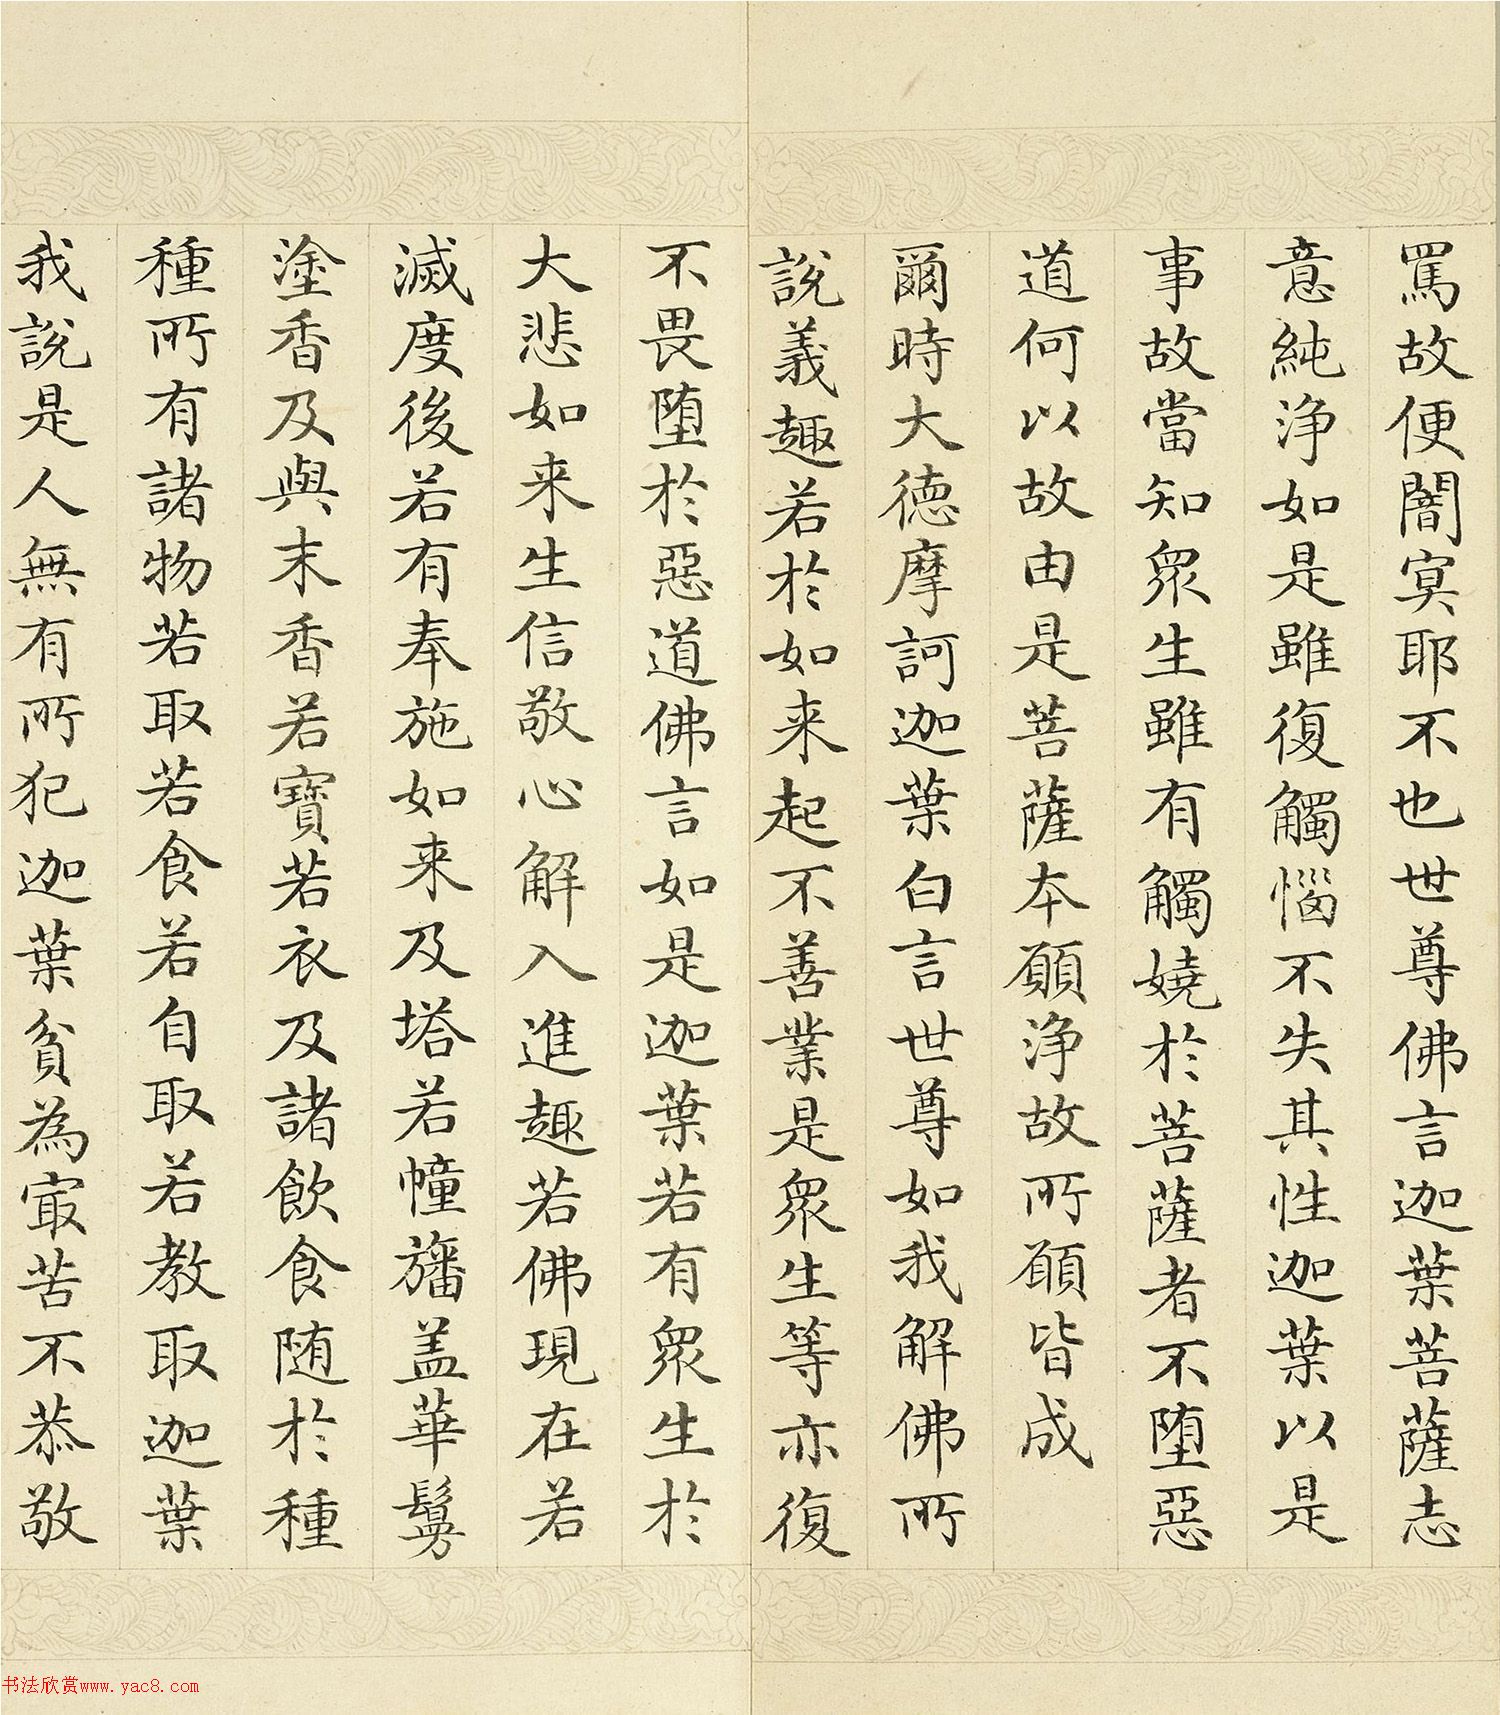 罵故便闇冥耶不也世尊佛言迦葉菩薩志
意純淨如是雖復觸惱不失其性迦葉以是
事故當知眾生雖有觸嬈於菩薩者不堕惡
道何以故由是菩薩本願淨故所願皆成
爾時大德摩訶迦葉白言世尊如我解佛所
說義趣若於如来起不善業是眾生等亦復
不畏堕於惡道佛言如是迦葉若有眾生於
大悲如来生信敬心解入進趣若佛現在若
滅度後若有奉施如来及塔若幢旛盖華鬘
塗香及與末香若寶若衣及諸飲食随於種
種所有諸物若取若食若自取若教取迦葉
我說是人無有所犯迦葉貧為寂苦不恭敬
书法欣赏www.yac8.com